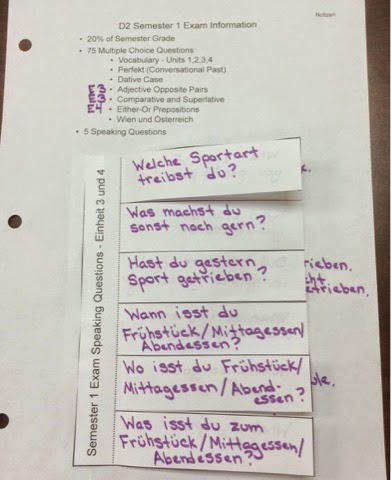 Notizen
D2 Semester 1 Exam Information
• 20% of Semester Grade
• 75 Multiple Choice Questions:
• Vocabulary - Units 1,2,3,4
• Perfekt (Conversational Past)
• Dative Case
• Adjective Opposite Pairs
• Comparative and Superlative
• Either-Or Prepositions
• Wien und Österreich
• 5 Speaking Questions
Semester 1 Exam Speaking Questions - Einheit 3 und 4
Welche Sportart
treibst du?
Was machst du
sonst noch gern?
Hast du gestern
Sport getrieben?
rieben.
etrieben.
Wann isst du
Frühstück/Mittagessen/
Abendessen?
Wo isst du Frühstück/
Mittagessen/Abend-
essen?
Was isst du zum
Frühstück/Mittagessen/
Abendessen?